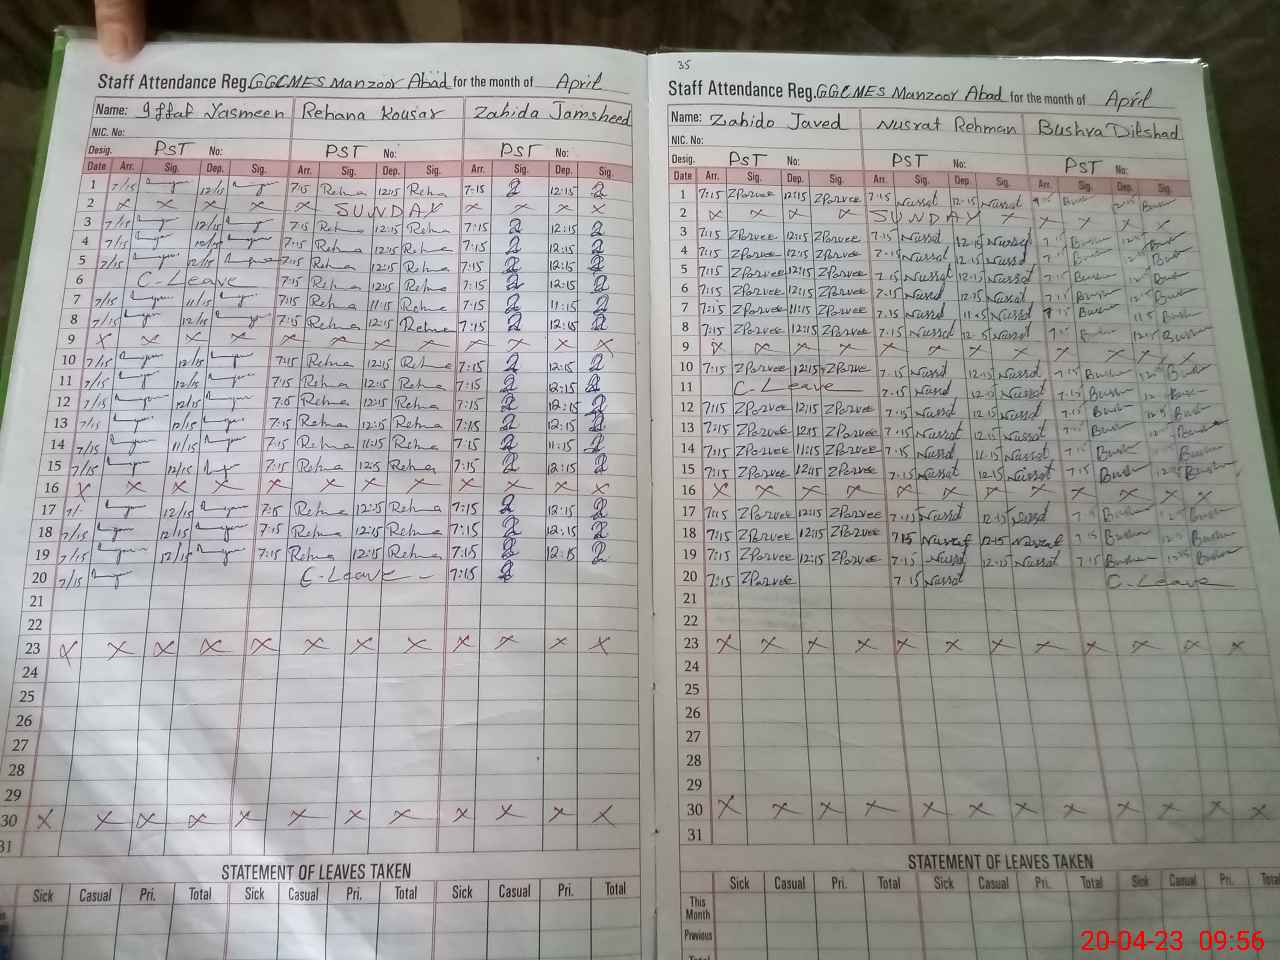 Staff Attendance Reg. GGCMES Manzoor Abad for the month of April
Name: Iffat Yasmeen Rehana Kousar Zahida Jamsheed
NIC. No:
Desig. PST No: PST No: PST No:
Date Arr. Sig. Dep. Sig. Arr. Sig. Dep. Sig. Arr. Sig. Dep. Sig.
1 7/15 12/15 7:15 Rehna 12:15 Rehna 7:15 2 12:15 2
2 x x x x x SUNDAY x x x x
3 7/15 12/15 7:15 Rehna 12:15 Rehna 7:15 2 12:15 2
4 7/15 12/15 7:15 Rehna 12:15 Rehna 7:15 2 12:15 2
5 7/15 12/15 7:15 Rehna 12:15 Rehna 7:15 2 12:15 2
6 C-Leave 7:15 Rehna 12:15 Rehna 7:15 2 12:15 2
7 7/15 11/15 7:15 Rehna 11:15 Rehna 7:15 2 11:15 2
8 7/15 12/15 7:15 Rehna 12:15 Rehna 7:15 2 12:15 2
9 x x x x x x x x x x x x
10 7/15 12/15 7:15 Rehna 12:15 Rehna 7:15 2 12:15 2
11 7/15 12/15 7:15 Rehna 12:15 Rehna 7:15 2 12:15 2
12 7/15 12/15 Rehna 12:15 Rehna 7:15 2 12:15 2
13 7/15 12/15 7:15 Rehna 12:15 Rehna 7:15 2 12:15 2
14 7/15 11/15 7:15 Rehna 11:15 Rehna 7:15 2 11:15 2
15 7/15 12/15 7:15 Rehna Rehna 7:15 2 12:15 2
16 x x x x x x x x x x x x
17 12/15 7:15 Rehna 12:15 Rehna 7:15 2 12:15 2
18 7/15 12/15 7:15 Rehna 12:15 Rehna 7:15 2 12:15 2
19 7/15 12/15 7:15 Rehna 12:15 Rehna 7:15 2 12:15 2
20 7/15 C-Leave - 7:15 2
21
22
23 x x x x x x x x x x x x
24
25
26
27
28
29
30 x x x x x x x x x x x x
31
STATEMENT OF LEAVES TAKEN
Sick Casual Pri. Total Sick Casual Pri. Total Sick Casual Pri. Total
35
Staff Attendance Reg. GGCMES Manzoor Abad for the month of April
Name: Zahido Javed Nusrat Rehman Bushra Dilshad
NIC. No:
Desig. PST No: PST No: PST No:
Date Arr. Sig. Dep. Sig. Arr. Sig. Dep. Sig. Arr. Sig. Dep. Sig.
1 7:15 ZParvee 12:15 ZParvee 7:15 Nusrat 12:15 Nusrat Bush Bush
2 x x x x SUNDAY x x x x x
3 7:15 ZParvee 12:15 ZParvee 7:15 Nusrat 12:15 Nusrat 7:15 Bush Bush
4 7:15 ZParvee 12:15 ZParvee 7:15 Nusrat 12:15 Nusrat 7:15 Bush Bush
5 7:15 ZParvee 12:15 ZParvee 7:15 Nusrat 12:15 Nusrat 7:15 Bush Bush
6 7:15 ZParvee 12:15 ZParvee 7:15 Nusrat 12:15 Nusrat 7:15 Bush Bush
7 7:15 ZParvee 11:15 ZParvee 7:15 Nusrat 11:15 Nusrat 7:15 Bush Bush
8 7:15 ZParvee 12:15 ZParvee 7:15 Nusrat Nusrat 7:15 Bush 12:15 Bush
9 x x x x x x x x x x x x
10 7:15 ZParvee 12:15 ZParvee 7:15 Nusrat 12:15 Nusrat 7:15 Bush Bush
11 C-Leave 7:15 Nusrat 12:15 Nusrat 7:15 Bush
12 7:15 ZParvee 12:15 ZParvee 7:15 Nusrat 12:15 Nusrat 7:15 Bush Bush
13 7:15 ZParvee 12:15 ZParvee 7:15 Nusrat 12:15 Nusrat 7:15 Bush Bush
14 7:15 ZParvee 11:15 ZParvee 7:15 Nusrat 11:15 Nusrat 7:15 Bush Bush
15 7:15 ZParvee 12:15 ZParvee 7:15 Nusrat 12:15 Nusrat 7:15 Bush 12:15 Bush
16 x x x x x x x x x x x x
17 7:15 ZParvee 12:15 ZParvee 7:15 Nusrat 12:15 Nusrat 7:15 Bush Bush
18 7:15 ZParvee 12:15 ZParvee 7:15 Nusrat 12:15 Nusrat 7:15 Bush 12:15 Bush
19 7:15 ZParvee 12:15 ZParvee 7:15 Nusrat 12:15 Nusrat 7:15 Bush 12:15 Bush
20 7:15 ZParvee 7:15 Nusrat C-Leave
21
22
23 x x x x x x x x x x x x
24
25
26
27
28
29
30 x x x x x x x x x x x x
31
STATEMENT OF LEAVES TAKEN
Sick Casual Pri. Total Sick Casual Pri. Total Sick Casual Pri. Total
This
Month
Previous
20-04-23 09:56